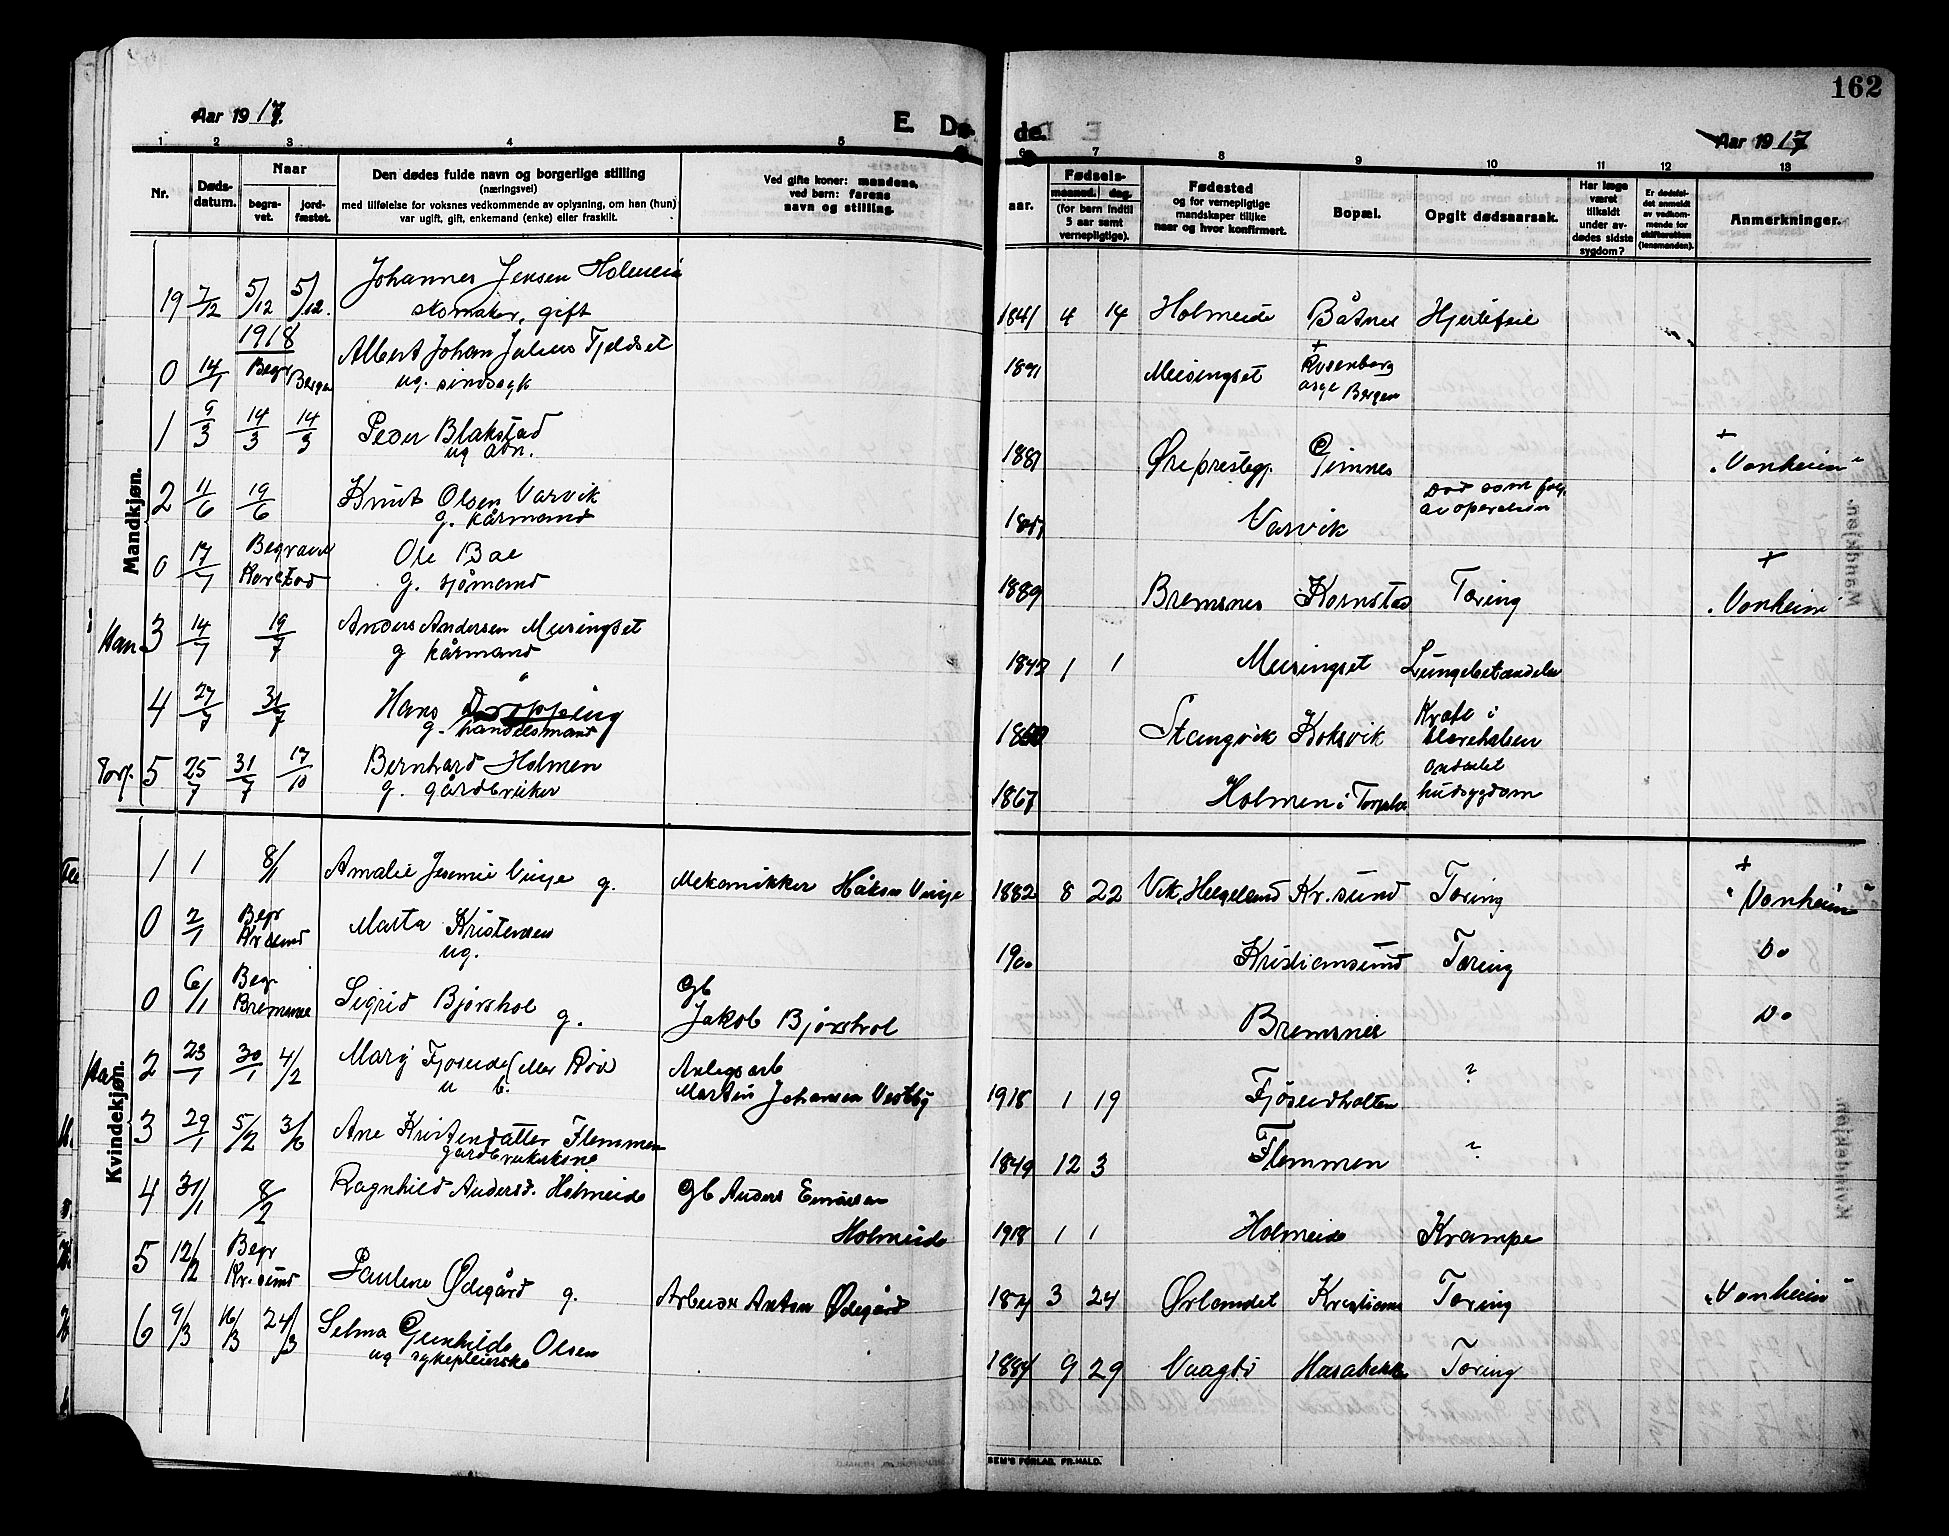 162
Aar 1917.
E. Dø de.
Aar 1917
1 2 3 4 5 6 7 8 9 10 11 12 13
Nr.
Døds-
datum.
Naar
begra-
vet.
jord-
fæstet.
Den dødes fulde navn og borgerlige stilling
(næringsvei)
med tilføielse for voksnes vedkommende av oplysning, om han (hun)
var ugift, gift, enkemand (enke) eller fraskilt.
Ved gifte koner: mandens,
ved børn: farens
navn og stilling.
aar.
Fødsels-
maaned. dag.
(for børn indtil
5 aar samt
vernepligtige).
Fødested
og for vernepligtige
mandskaper tillike
naar og hvor konfirmert.
Bopæl.
Opgit dødsaarsak.
Har læge
været
tilkaldt
under av-
dødes sidste
sygdom?
Er dødsfal-
det anmeldt
av vedkom-
mende for
skifteretten
(lensmanden).
Anmerkninger.
Mandkjøn.
19 5/12 5/12. Johannes Jensen Holmeide
skomaker, gift
1841 4 14 Holmeide Båtnes Hjertefeil
1918
0 14/1 Begr Bergen Albert Johan Julius Fjeldset
ug. sindssyk
1891 Meisingset Rosenberg
asyl Bergen
1 9/3 14/3 14/3 Peder Blakstad
ug adv.
1881 Øre prestegj. Gimnes + "Vonheim"
2 11/6 19/6 Knut Olsen Varvik
g. kårmand
Varvik Død som følge
av operation
0 17/7 Begravet
Kornstad Ole Bae
g. sjømand
1889 Bremsnes Kornstad Tæring + "Vonheim"
3 14/7 19/7 Anders Andersen Meisingset
g kårmand
1 1 Meisingset Lungebetændelse
4 27/7 31/7 Hans Drøpping
g. handelsmand
Stangvik Koksvik Kræft i
blærehalsen
Torj. 5 25/7 31/7 17/10 Bernhard Holmen
g. gårdbruker
1867 Holmen i Torjulv ondartet
hudsygdom
Kvindekjøn.
1 1 8/1 Amalie Jesmine Vinje g. Mekanikker Håkon Vinje
1882 8 22 Vik, Helgeland Kr.sund Tæring + "Vonheim"
0 2/1 Begr
Kr.sund Marta Kristensen
ug.
1900 Kristiansund Tæring Do
0 6/1 Begr
Bremsnes Sigrid Bjørshol g. Gb
Jakob Bjørshol
Bremsnes Do
2 23/1 30/1 4/2 Mary Fjøseide (eller Rød)
u b. Anlegsarb
Martin Johansen Vestby
1918 1 19 Fjøseidholten ?
3 29/1 5/2 3/6 Ane Kristendatter Flemmen
gårdbrukerkone
1849 12 3 Flemmen ?
4 31/1 8/2 Ragnhild Andersd. Holmeide Gb Anders Einarsen
Holmeide
1918 1 1 Holmeide Krampe
5 12/2 Begr
Kr.sund Pauline Ødegård g. Arbeider Anton Ødegård
3 24 Ørlandet Kristians Tæring "Vonheim"
6 9/3 16/3 24/3 Selma Gunhilde Olsen
ug sykepleierske
1884 9 29 Vaagbø Hasabekk Tæring
SEM'S FORLAG, FR.HALD.